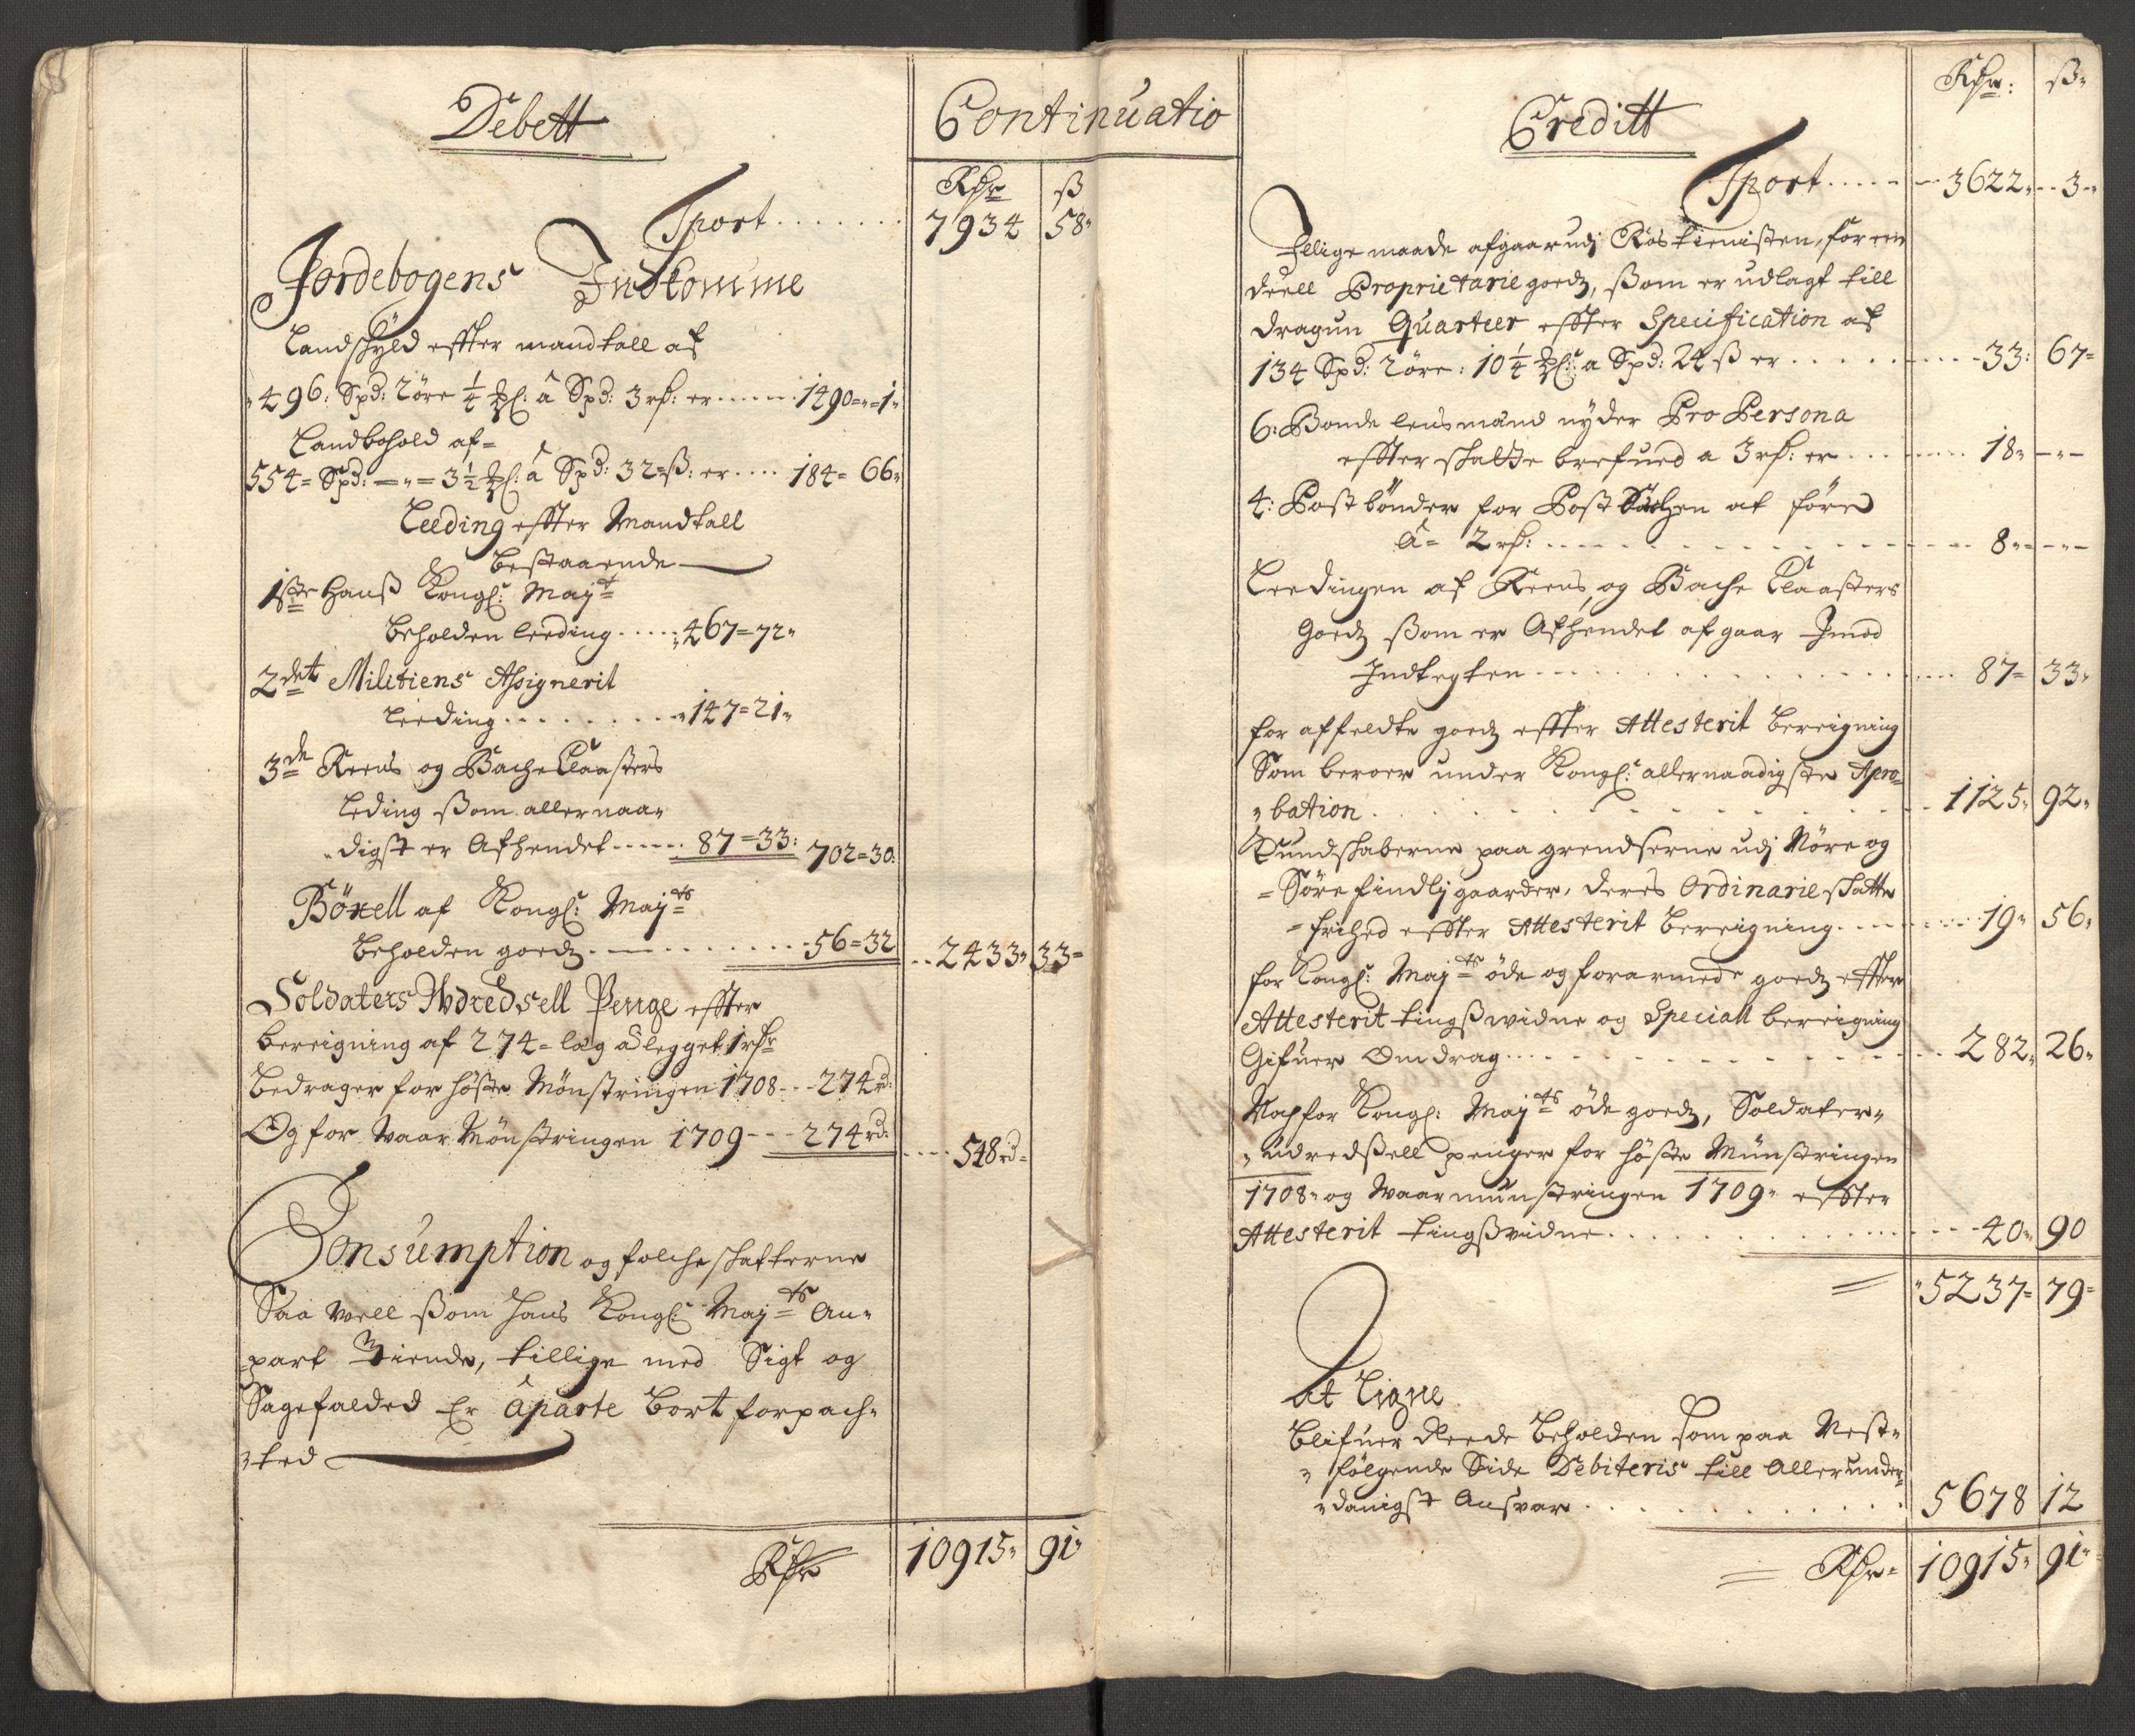 Debett
Continuatio
Rdr ß
Tport . . . . . . . 7934 58"
Jordebogens Indkomme
Landskyld effter mandtall af
"496: Spd: 2 öre ¼ â Spd: 3 rd: er ...... 1490="=1"
Landbohold af=
554= Spd: —"= 3½ â Spd: 32=ß: er .... 184= 66"
Leeding effter Mandtall
bestaaende
1ste Hanß Kongl: Maytt
beholden leeding ..... 467=72"
2det Militiens Assignerit
Leeding ......... 147=21"
3de Reens og Bache Claasters
leding ßom allernaa"
"digst er Afhendet ...... 87=33: 702=30:
Böxell af Kongl: Maytts
beholden goedz ............ 56=32 .. 2433" 33=
Soldaters Vdredsell Penge effter
bereigning af 274= læg â legget 1 rdr
bedrager for höste Mönstringen 1708 --- 274 rd:
Og for Waar Mönstringen 1709 --- 274 rd: .... 548 rd=
Consumption og folcheskatterne
Saa vell ßom hans Kongl: Maytts An"
"part Tiende, tillige med Sigt og
Sagefalded Er âparte bort forpach"
"ted
Rdr 10915" 91"
Creditt
Rdr: ß"
Tport ...... 3622" .. 3"
Illige maade afgaar udj Rostienisten, for een
deell Proprietarie goedz, ßom er udlagt till
dragun Quarteer effter Specification af
134 Spd: 2 öre: 10¼ a Spd: 24 ß er ......... 33: 67=
6: Bonde lensmænd nyder Pro Persona
effter skatte brefued a 3 rd: er ...... 18" —"—
4: Post bönder for Post at före
â= 2 rd: .............. 8"= —"—
Leedingen af Reens, og Bache Claasters
Goedz ßom er Afhendet af gaar Imod
Indtegten .............. 87= 33"
for affeldte goedz effter Attesterit bereigning
Som beroer under Kongl: allernaadigste Apro=
"bation .............. 1125" 92"
Kundskaberne paa grendserne udj Nöre og
=Söre findlj gaarder, deres Ordinarie skatte
=frihed effter Attesterit bereigning ....... 19" 56"
for Kongl: Maytts öde og forarmede goedz effter
Attesterit tingßwidne og Speciall bereigning
Gifuer Omdrag ............ 282" 26"
Noch for Kongl: Maytts öde goedz, Soldater"
"udredßell penger for höste Münstringen
1708" og Waar munstringen 1709" effter
Attesterit tingßvidne .............. 40" 90
"5237= 79=
At Ligne
blifuer Reede beholden som paa Nest"
"fölgende Side Debiteris till Allerunder=
"danigst Ansvar ............ 5678 12
Rdr= 10915" 91"